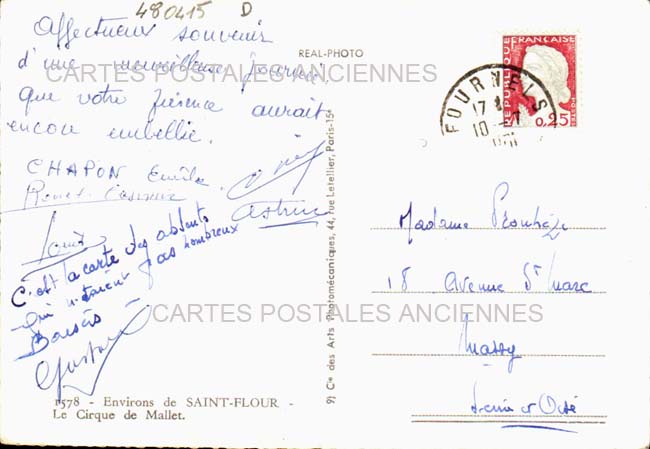 480415 D
Affectueux souvenir
d'une merveilleuse journée
que votre présence aurait
encore embellie.
CHAPON Emile
Astruc
Louis
C'est la carte des absents
qui n'étaient pas nombreux
Baisers
Gustave
1578 - Environs de SAINT-FLOUR -
Le Cirque de Mallet.
REAL-PHOTO
9) Cie des Arts Photomécaniques, 44, rue Letellier, Paris-15e
FOURNELS
17
10
REPUBLIQUE FRANÇAISE
0,25
Madame
18 Avenue St Marc
Massy
Seine et Oise
CARTES POSTALES ANCIENNES
CARTES POSTALES ANCIENNES